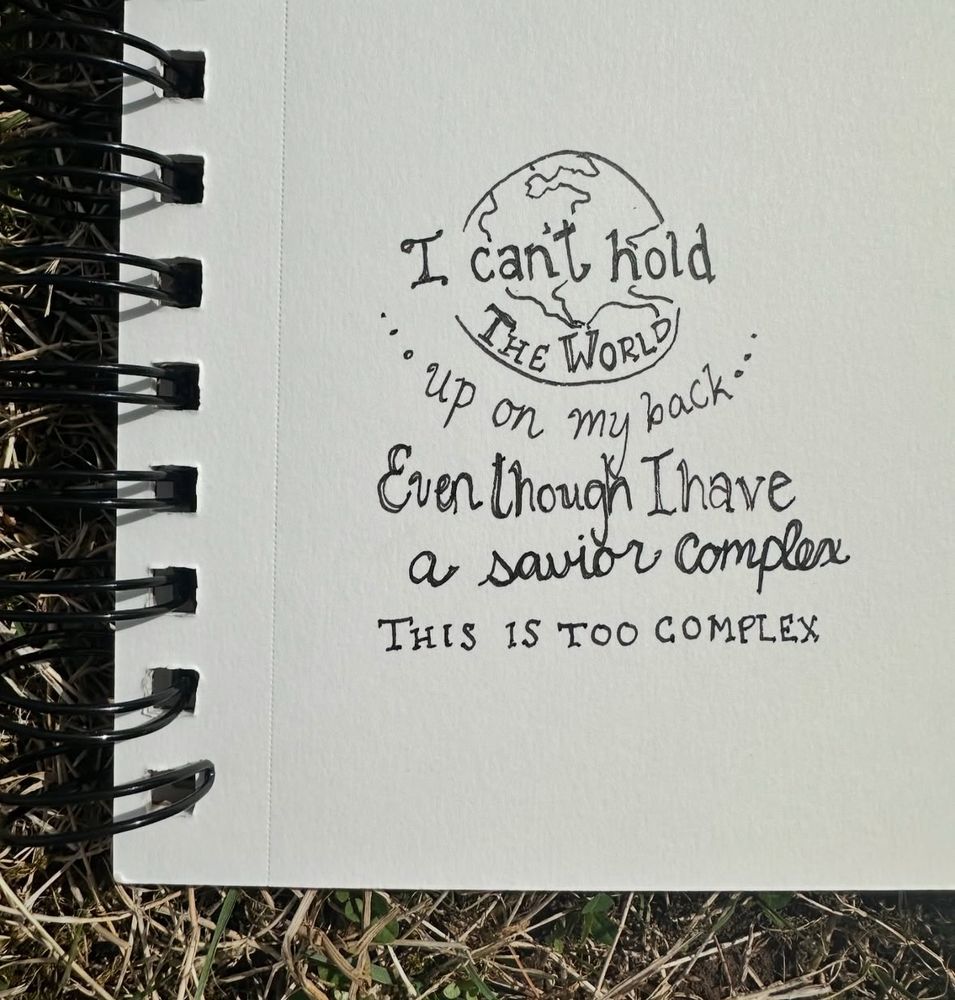 I can't hold
THE WORLD
... up on my back...
Even though I have
a savior complex
THIS IS TOO COMPLEX